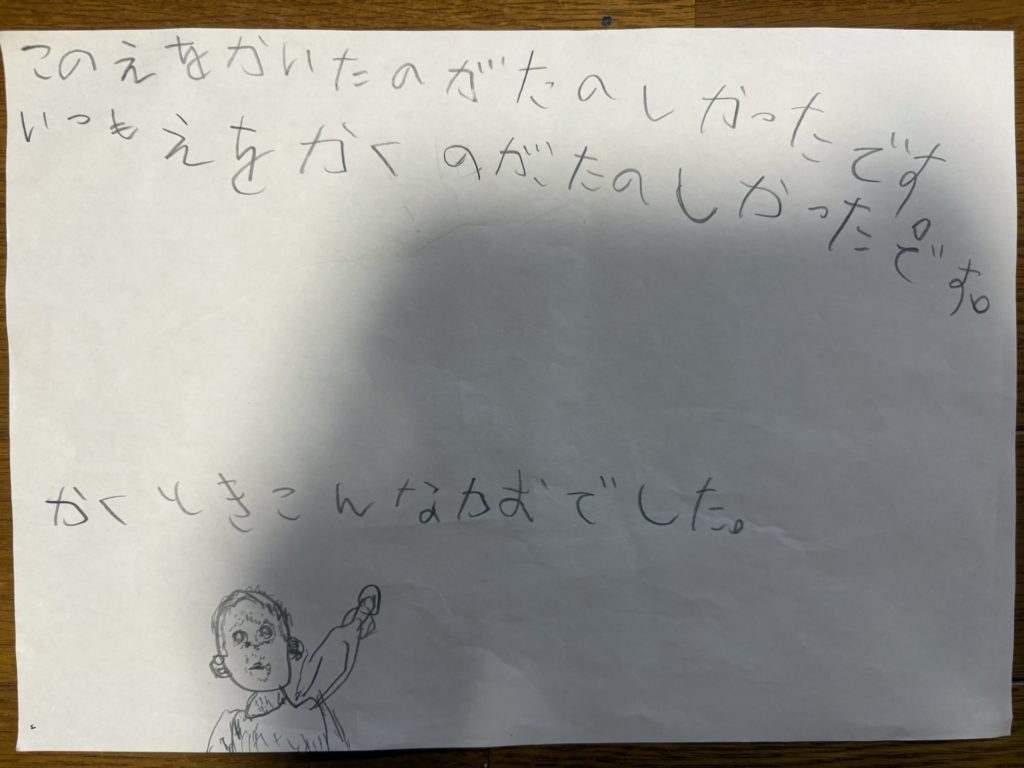 このえをかいたのがたのしかったです。
いつもえをかくのがたのしかったです。
かくときこんなかおでした。